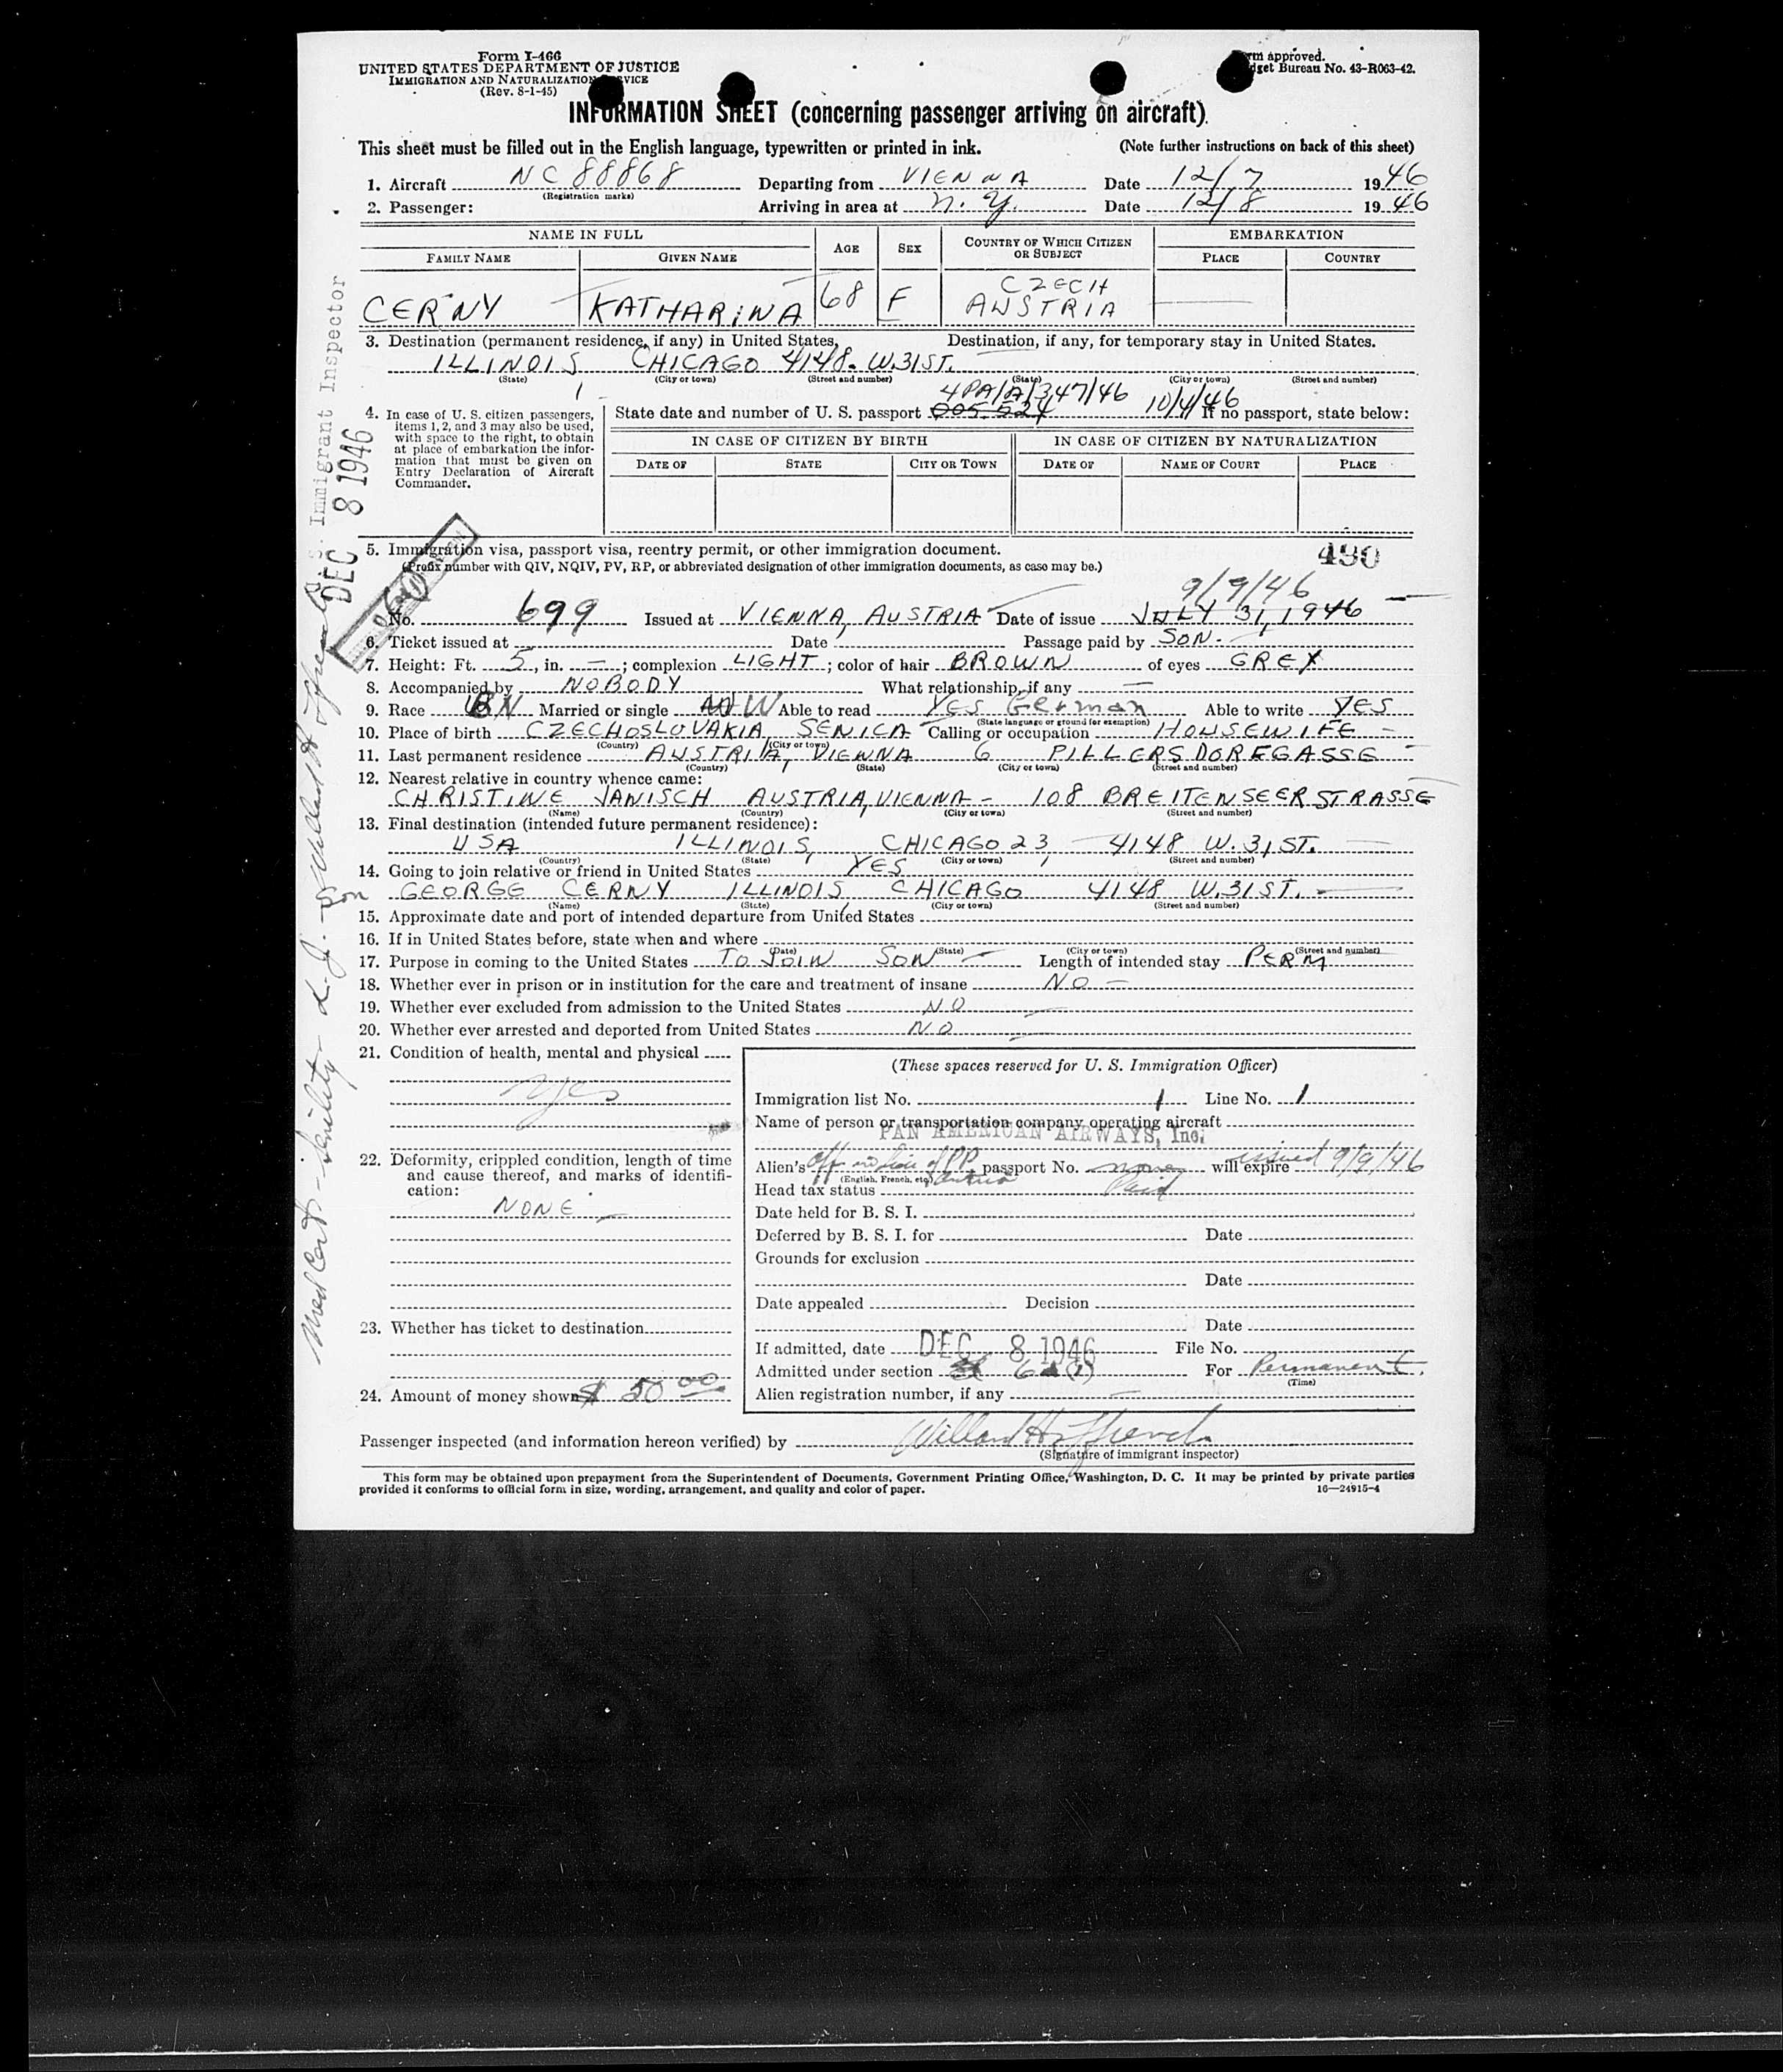 Form I-466
UNITED STATES DEPARTMENT OF JUSTICE
IMMIGRATION AND NATURALIZATION SERVICE
(Rev. 8-1-45)
Form approved.
Budget Bureau No. 43-R063-42.
INFORMATION SHEET (concerning passenger arriving on aircraft)
This sheet must be filled out in the English language, typewritten or printed in ink. (Note further instructions on back of this sheet)
1. Aircraft NC 88868 Departing from VIENNA Date 12/7 1946
(Registration marks)
2. Passenger: Arriving in area at N. Y. Date 12/8 1946
NAME IN FULL AGE SEX COUNTRY OF WHICH CITIZEN OR SUBJECT EMBARKATION
FAMILY NAME GIVEN NAME PLACE COUNTRY
CZECH
CERNY KATHARINA 68 F AUSTRIA
3. Destination (permanent residence, if any) in United States, Destination, if any, for temporary stay in United States.
ILLINOIS CHICAGO 4148. W.31ST.
(State) (City or town) (Street and number) (State) (City or town) (Street and number)
4PA/A/347/46 10/4/46
4. In case of U. S. citizen passengers, items 1, 2, and 3 may also be used, with space to the right, to obtain at place of embarkation the information that must be given on Entry Declaration of Aircraft Commander.
State date and number of U. S. passport 005.524 If no passport, state below:
IN CASE OF CITIZEN BY BIRTH IN CASE OF CITIZEN BY NATURALIZATION
DATE OF STATE CITY OR TOWN DATE OF NAME OF COURT PLACE
5. Immigration visa, passport visa, reentry permit, or other immigration document. 490
(Prefix number with QIV, NQIV, PV, RP, or abbreviated designation of other immigration documents, as case may be.)
9/9/46
No. 699 Issued at VIENNA, AUSTRIA Date of issue JULY 31, 1946
6. Ticket issued at Date Passage paid by SON.
7. Height: Ft. 5, in. — ; complexion LIGHT ; color of hair BROWN of eyes GREY
8. Accompanied by NOBODY What relationship, if any —
9. Race Married or single W Able to read YES German Able to write YES
(State language or ground for exemption)
10. Place of birth CZECHOSLOVAKIA, SENICA Calling or occupation HOUSEWIFE
(Country) (City or town)
11. Last permanent residence AUSTRIA, VIENNA 6 PILLERSDORFGASSE
(Country) (State) (City or town) (Street and number)
12. Nearest relative in country whence came:
CHRISTINE JANISCH AUSTRIA, VIENNA - 108 BREITENSEERSTRASSE
(Name) (Country) (City or town) (Street and number)
13. Final destination (intended future permanent residence):
USA ILLINOIS, CHICAGO 23, 4148 W. 31 ST.
(Country) (State) (City or town) (Street and number)
14. Going to join relative or friend in United States YES
son GEORGE CERNY ILLINOIS, CHICAGO 4148 W.31ST.
(Name) (State) (City or town) (Street and number)
15. Approximate date and port of intended departure from United States
16. If in United States before, state when and where
(Date) (State) (City or town) (Street and number)
17. Purpose in coming to the United States TO JOIN SON Length of intended stay PERM
18. Whether ever in prison or in institution for the care and treatment of insane NO
19. Whether ever excluded from admission to the United States NO
20. Whether ever arrested and deported from United States NO
21. Condition of health, mental and physical
yes
22. Deformity, crippled condition, length of time and cause thereof, and marks of identification:
NONE
23. Whether has ticket to destination
24. Amount of money shown $ 50 00
(These spaces reserved for U. S. Immigration Officer)
Immigration list No. 1 Line No. 1
Name of person or transportation company operating aircraft
PAN AMERICAN AIRWAYS, Inc.
Alien's passport No. will expire issued 9/9/46
(English, French, etc.)
Head tax status Paid
Date held for B. S. I.
Deferred by B. S. I. for Date
Grounds for exclusion
Date
Date appealed Decision
Date
If admitted, date DEC 8 1946 File No.
Admitted under section For Permanent.
(Time)
Alien registration number, if any —
Passenger inspected (and information hereon verified) by Willard H. French
(Signature of immigrant inspector)
This form may be obtained upon prepayment from the Superintendent of Documents, Government Printing Office, Washington, D. C. It may be printed by private parties
provided it conforms to official form in size, wording, arrangement, and quality and color of paper. 16—24915-4
Immigrant Inspector
DEC 8 1946
Med Cert - Senility